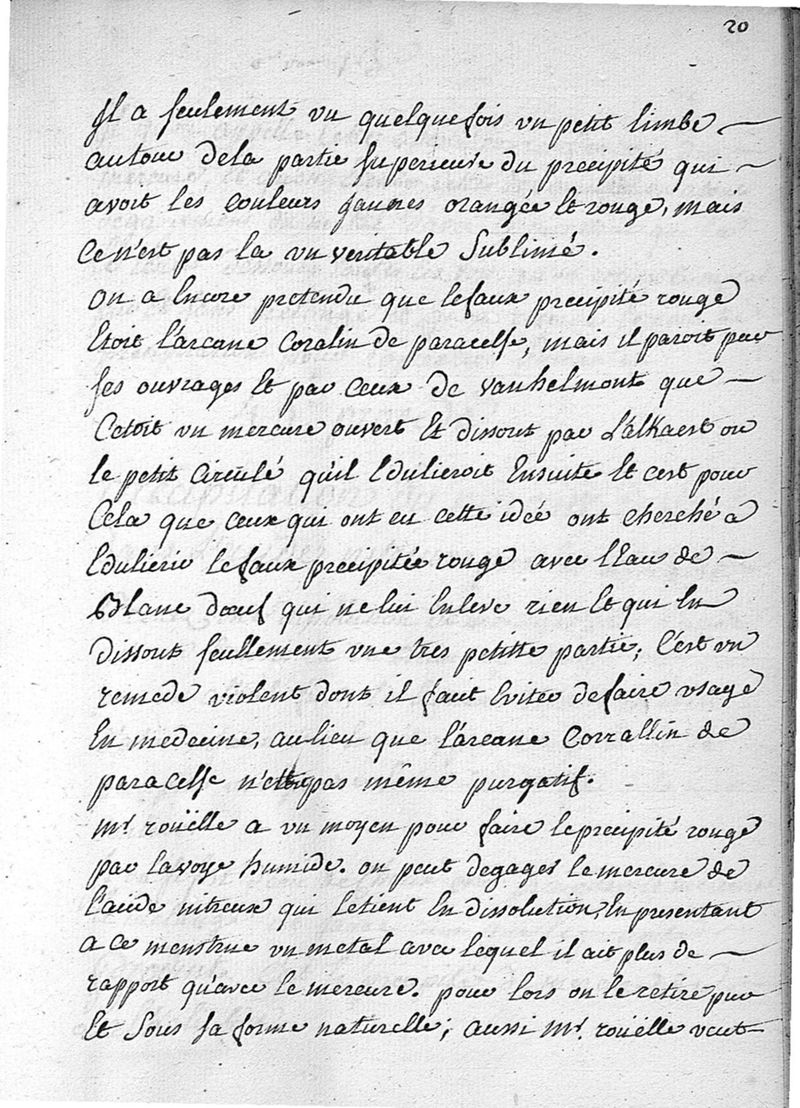 20
Il a seulement vu quelquefois un petit limbe
autour dela partie superieure du precipité qui
avoit les couleurs jaunes orangée et rouge, mais
ce n'est pas la un veritable sublimé.
on a encore pretendu que le faux precipité rouge
etoit l'arcane coralin de paracelse, mais il paroit par
ses ouvrages et par ceux de vanhelmont que
C'etoit un mercure ouvert et dissout par l'alkaest ou
le petit circulé qu'il edulieroit ensuite et c'est pour
cela que ceux qui ont eu cette idée ont cherché a
edulierer le faux precipitée rouge avec l'eau de
Blanc d'oeuf qui ne lui enleve rien et qui en
dissout seullement une tres petitte partie; C'est un
remede violent dont il faut eviter de faire usage
en medecine, au lieu que l'arcane Corrallin de
paracelse n'est pas même purgatif.
mr. roüelle a un moyen pour faire le precipité rouge
par la voye humide. on peut degager le mercure de
l'acide nitreux qui le tient en dissolution, en presentant
a ce menstrue un metal avec lequel il ait plus de
rapport qu'avec le mercure. pour lors on le retire pur
et sous sa forme naturelle; aussi mr. roüelle veut